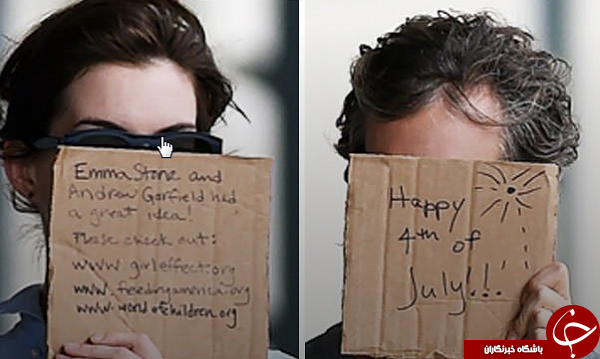 Emma Stone and
Andrew Garfield had
a great idea!
Please check out:
www.girleffect.org
www.feedingamerica.org
www.worldofchildren.org
Happy
4th of
July!!.
باشگاه خبرنگاران